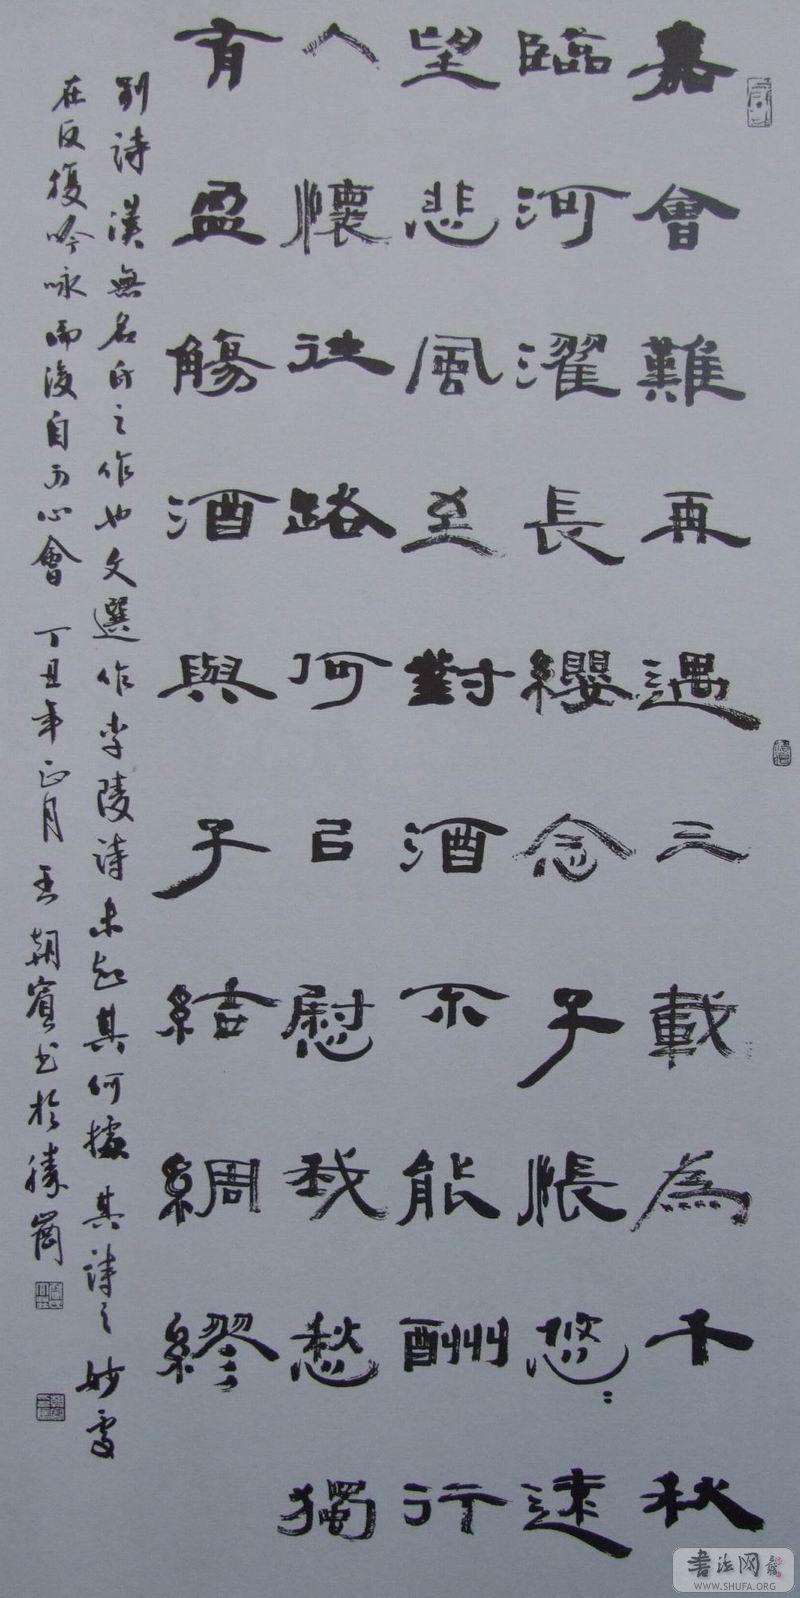 嘉會難再遇三載為千秋
臨河濯長纓念子悵悠:遠
望悲風至對酒不能酬行
人懷往路何㠯慰我愁獨
有盈觴酒與子結綢繆
別詩漢無名氏之作也文選作李陵詩未知其何據其詩之妙處
在反復吟咏而後自可心會 丁丑年正月 王朝賓書於
書法网
WWW.SHUFA.ORG